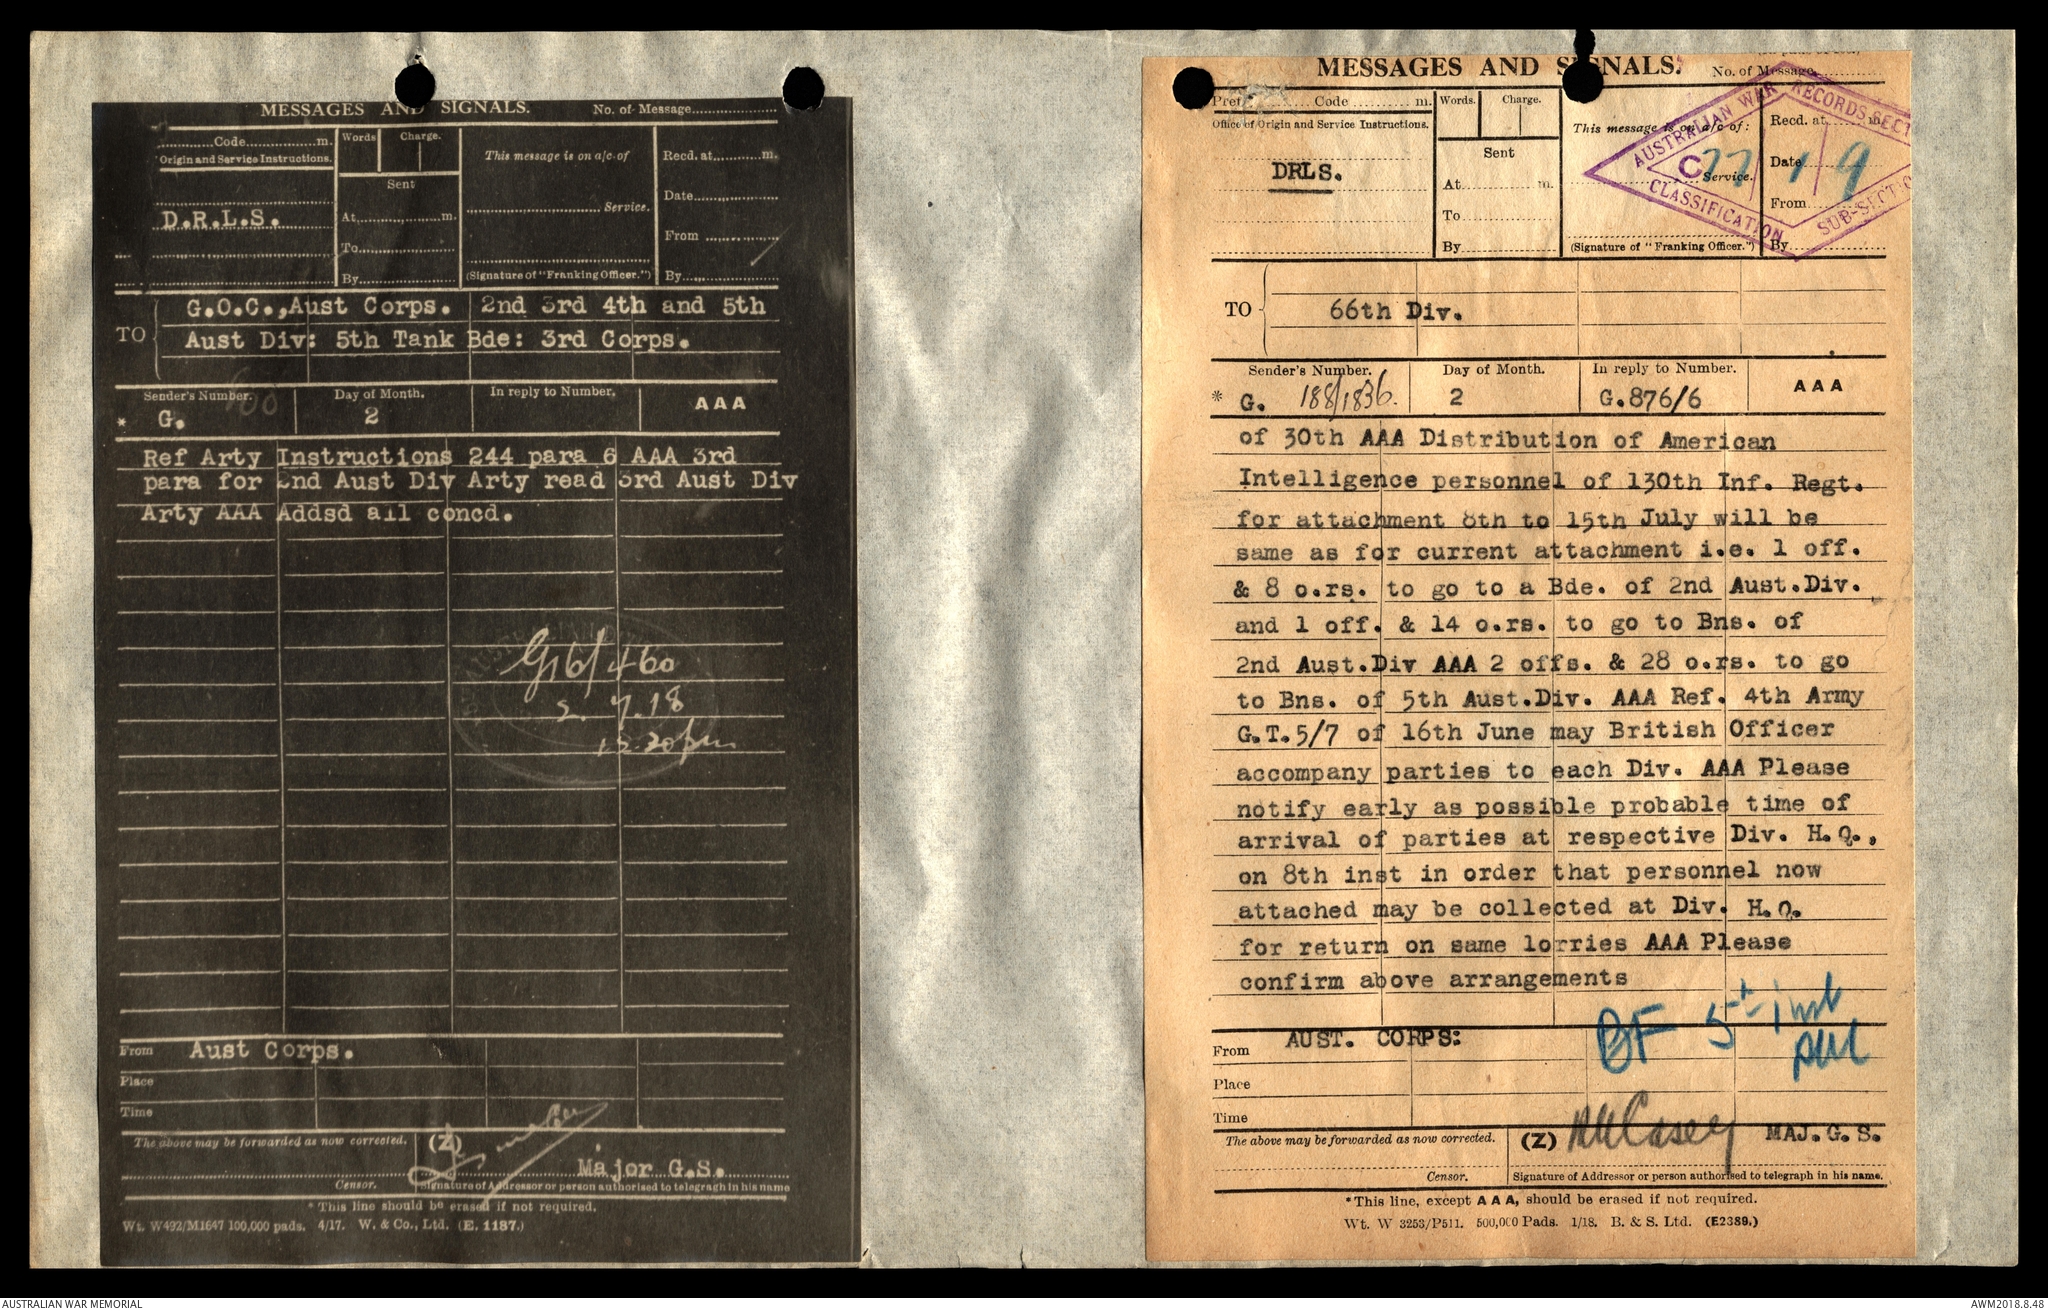 MESSAGES AND SIGNALS. No. of Message
Code m. Words Charge. This message is on a/c of Recd. at m.
Origin and Service Instructions.
Sent Date
D.R.L.S. At m. Service.
To From
By (Signature of "Franking Officer.") By
TO G.O.C.,Aust Corps. 2nd 3rd 4th and 5th
Aust Div: 5th Tank Bde: 3rd Corps.
Sender's Number. Day of Month. In reply to Number. AAA
* G. 2
Ref Arty Instructions 244 para 6 AAA 3rd
para for 2nd Aust Div Arty read 3rd Aust Div
Arty AAA Addsd all concd.
G16/460
2.7.18
12.20pm
From Aust Corps.
Place
Time
The above may be forwarded as now corrected. (Z)
Major G.S.
Censor. Signature of Addressor or person authorised to telegraph in his name
* This line should be erased if not required.
Wt. W492/M1647 100,000 pads. 4/17. W. & Co., Ltd. (E. 1187.)
MESSAGES AND SIGNALS. No. of Message
Prefix Code m. Words. Charge. This message is on a/c of: Recd. at m.
Office of Origin and Service Instructions.
DRLS. Sent Date
At m. Service.
To From
By (Signature of "Franking Officer.") By
AUSTRALIAN WAR RECORDS SECT
C 77 1 9
CLASSIFICATION SUB-SECTIO
TO 66th Div.
Sender's Number. Day of Month. In reply to Number. AAA
* G. 188/1836. 2 G.876/6
of 30th AAA Distribution of American
Intelligence personnel of 130th Inf. Regt.
for attachment 8th to 15th July will be
same as for current attachment i.e. 1 off.
& 8 o.rs. to go to a Bde. of 2nd Aust.Div.
and 1 off. & 14 o.rs. to go to Bns. of
2nd Aust.Div AAA 2 offs. & 28 o.rs. to go
to Bns. of 5th Aust.Div. AAA Ref. 4th Army
G.T.5/7 of 16th June may British Officer
accompany parties to each Div. AAA Please
notify early as possible probable time of
arrival of parties at respective Div. H.Q.,
on 8th inst in order that personnel now
attached may be collected at Div. H.Q.
for return on same lorries AAA Please
confirm above arrangements
BF 5th inst
From AUST. CORPS:
Place
Time
The above may be forwarded as now corrected. (Z) RGCasey MAJ.G.S.
Censor. Signature of Addressor or person authorised to telegraph in his name.
*This line, except AAA, should be erased if not required.
Wt. W 3253/P511. 500,000 Pads. 1/18. B. & S. Ltd. (E2389.)
AUSTRALIAN WAR MEMORIAL AWM2018.8.48